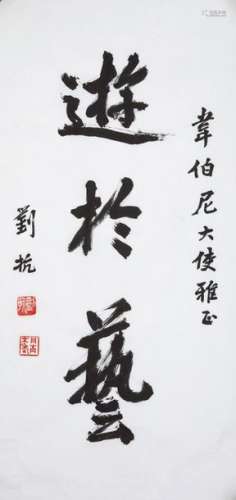 韋伯尼大使雅正
遊於藝
劉抗